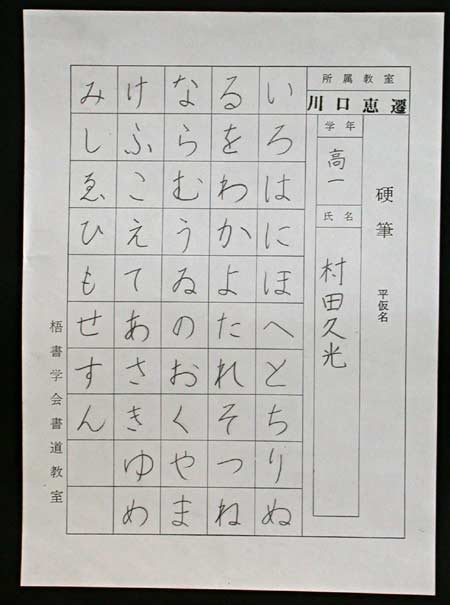 所属教室
川口恵遷
学年
高一
氏名
村田久光
硬筆 平仮名
いろはにほへとちりぬ
るをわかよたれそつね
ならむうゐのおくやま
けふこえてあさきゆめ
みしゑひもせすん
梧書学会書道教室